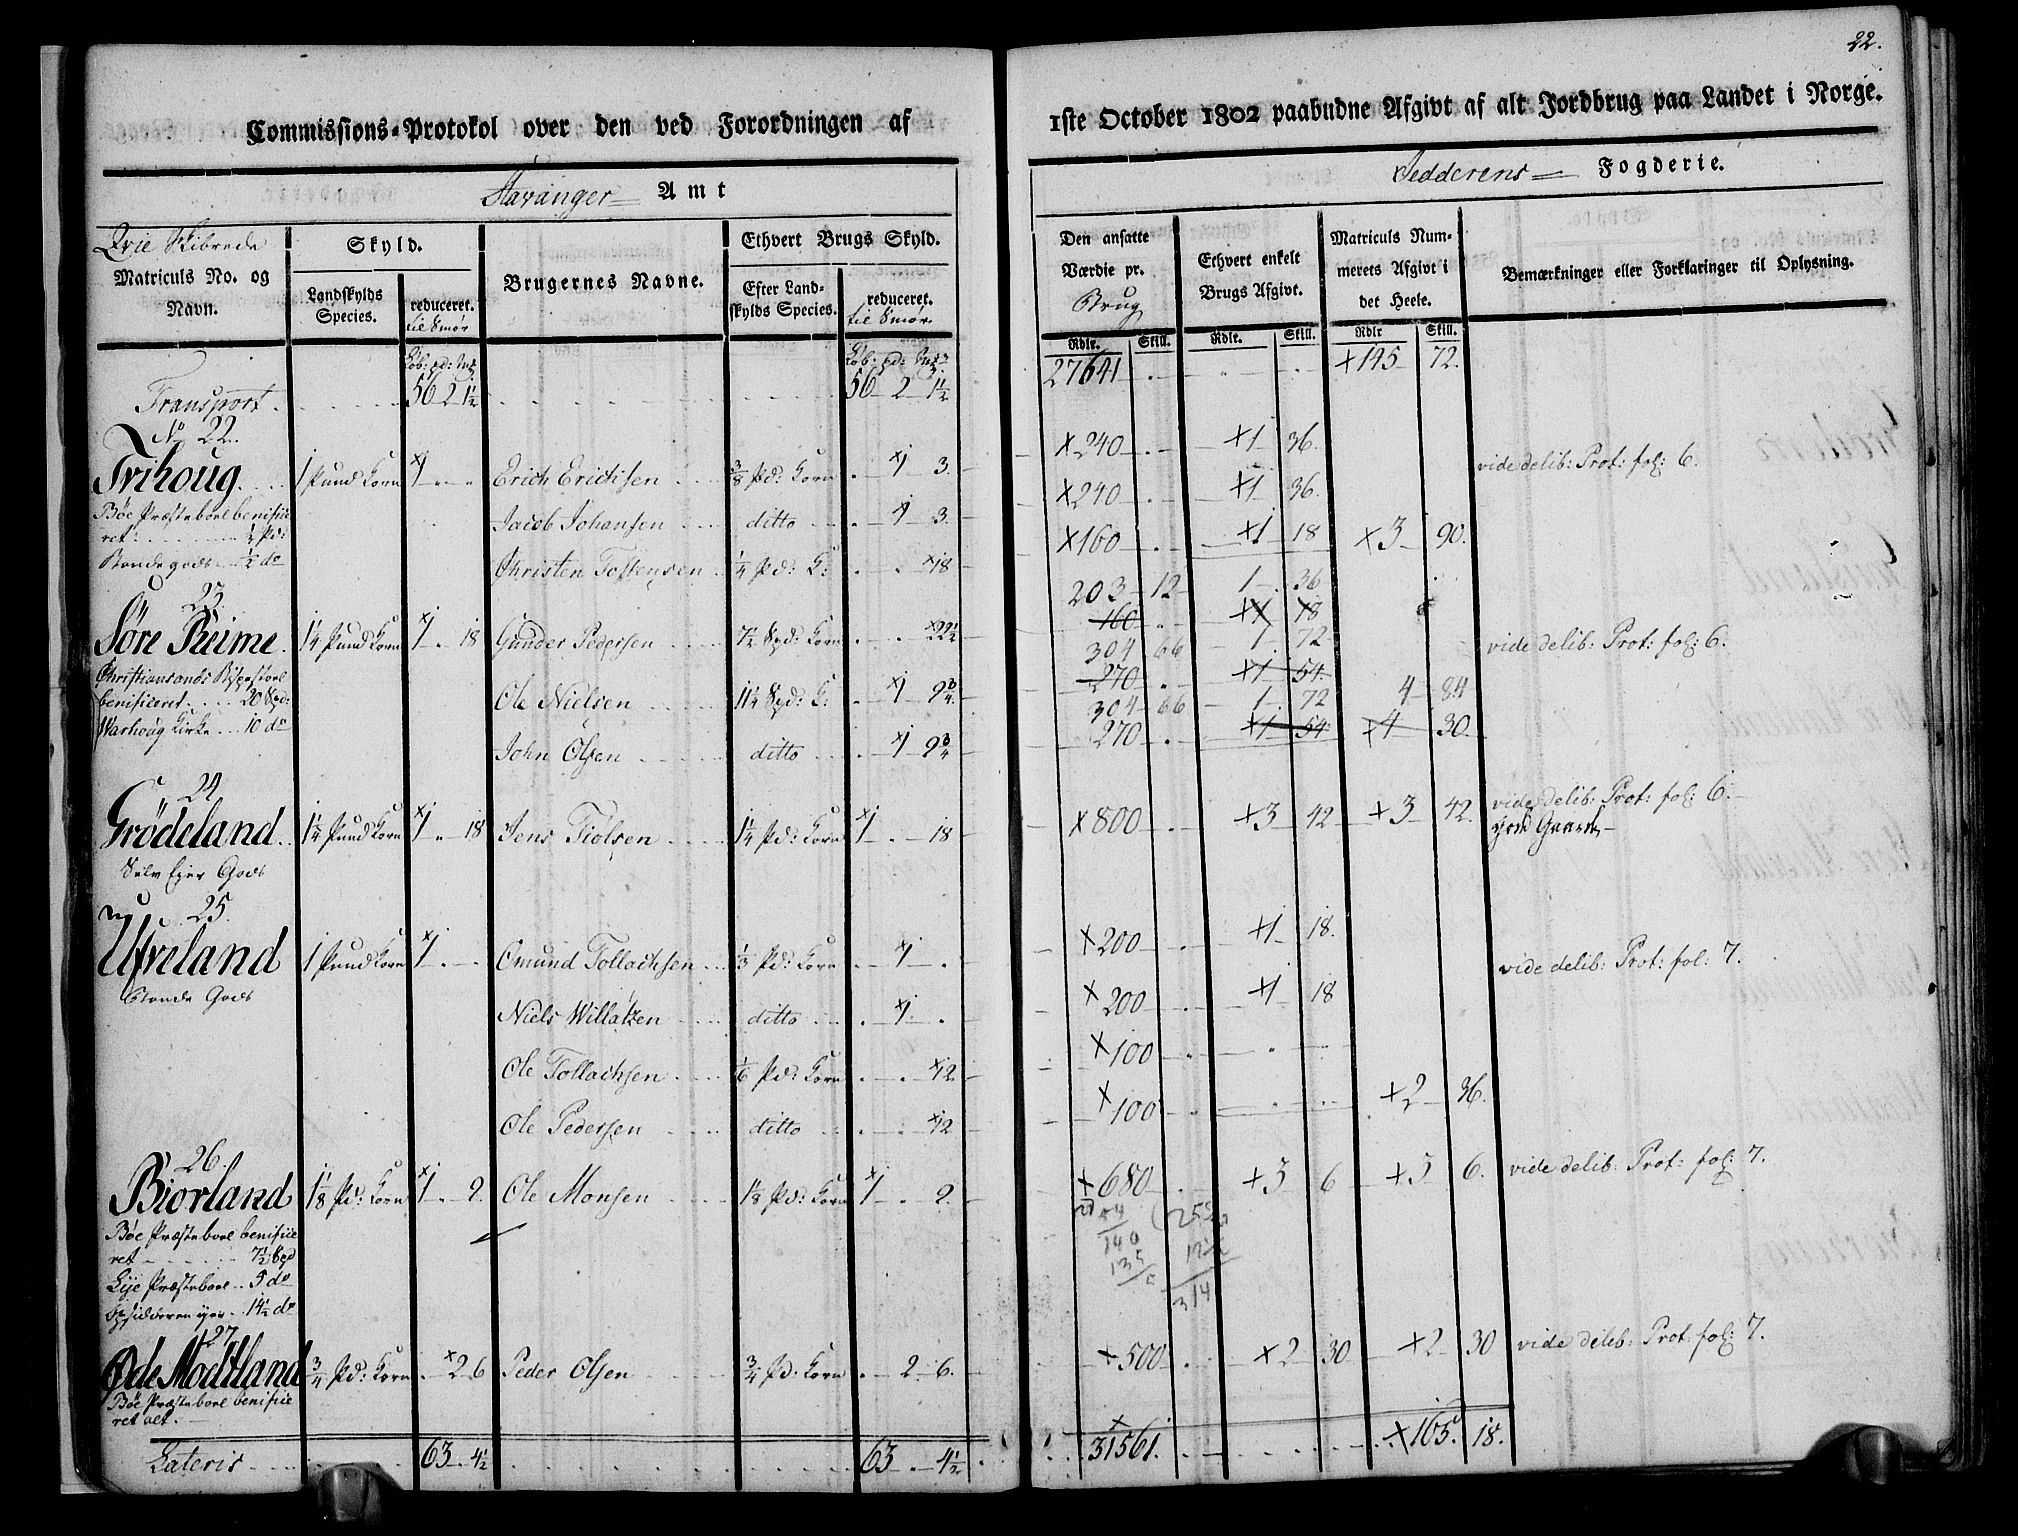 22.
Commissions-Protokol over den ved Forordningen af 1ste October 1802 paabudne Afgivt af alt Jordbrug paa Landet i Norge.
Stavanger Amt
Jedderens Fogderie.
Qvie Skibrede
Matriculs No. og Navn.
Skyld.
Landskylds Species.
reduceret. til Smør
Brugernes Navne.
Ethvert Brugs Skyld.
Efter Landskylds Species.
reduceret. til Smør.
Den ansatte Værdie pr. Brug
Ethvert enkelt Brugs Afgivt.
Matriculs Nummerets Afgivt i det Heele.
Bemærkninger eller Forklaringer til Oplysning.
Rdlr. Skill. Rdlr. Skill. Rdlr Skill.
Transport . 56 2 1½ 56 2 1½ 27641 . ×145 72.
No 22.
Trihoug 1 Pund Korn ×1 . . Erich Erichsen 3/8 Pd: Korn . ×1 3. ×240 . ×1 36. vide delib: Prot: fol: 6.
Bøe Præsteboel benificeret ½ Pd: Jacob Johansen ditto . ×1 3. ×240 . ×1 36.
Bondegods ½ do Christen Tostensen ¼ Pd: K: . . ×18 ×160 . ×1 18 ×3 90.
23.
Søre Reime 1¼ Pund Korn ×1 . 18 Gunder Pedersen 7½ Spd: Korn . . ×22½ 203 12 1 36
160 . ×1 18 vide delib: Prot: fol: 6.
Christiansands Bispestoel
benificeret 20 Spd: Ole Nielsen 11¼ Spd: K: . ×1 9¾ 304 66 1 72
270 . ×1 54
Warhoug Kirke 10 do John Olsen ditto . ×1 9¾ 304 66 1 72 4 84
270 . ×1 54 ×4 30
24
Grødeland 1¼ Pund Korn ×1 . 18 Jens Tiølsen 1¼ Pd: Korn ×1 . 18 ×800 . ×3 42 ×3 42. vide delib: Prot: fol: 6.
Selv Ejer Gods
25.
Ufveland 1 Pund Korn ×1 . . Omund Tollachsen 1/3 Pd: Korn . ×1 . ×200 . ×1 18. vide delib: Prot: fol: 7.
Bonde Gods Niels Willatzen ditto . ×1 . ×200 . ×1 18
Ole Tollachsen 1/6 Pd: Korn . . ×12 ×100
Ole Pedersen ditto . . ×12 ×100 ×2 36.
26.
Biorland 1⅛ Pd: Korn ×1 . 9. Ole Monsen 1⅛ Pd: Korn ×1 . 9. ×680 . ×3 6 ×3 6. vide delib: Prot: fol: 7.
Bøe Præsteboel benificeret 7½ Spd
Lye Præsteboel 5 do
14½ do
140
135
314
27
Øde Modtland ¾ Pd: Korn . ×2 6 Peder Olsen ¾ Pd: Korn . 2 6. ×500 . ×2 30 ×2 30 vide delib: Prot: fol: 7.
Bøe Præsteboel benificeret alt.
Lateris 63 . 4½ 63 . 4½ ×31561. ×165. 18.